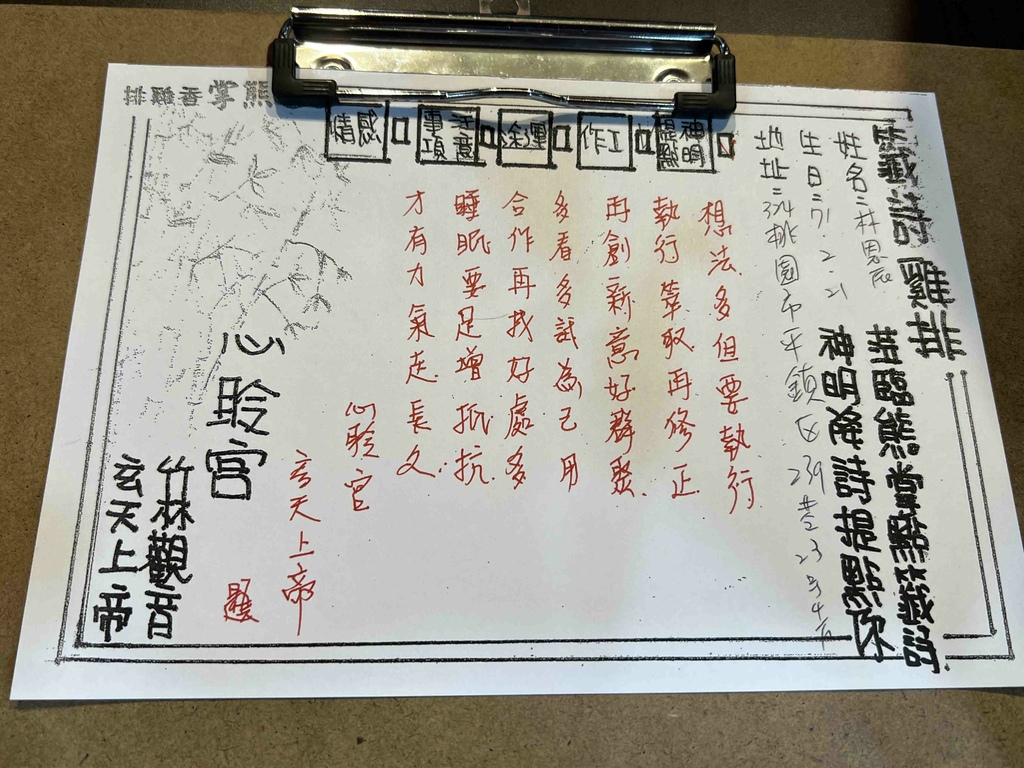 籤詩雞排
蒞臨熊掌雞籤詩
神明降詩指點你
姓名：林恩辰
生日：71 2.21
地址：324桃園市平鎮区
神明指點
工作
運途
注意事項
感情
想法多但要執行
執行萃取再修正
再創新意好群聚
多看多試為己用
合作再找好處多
睡眠要足增抵抗
才有力氣走長久
心聆宮
玄天上帝
題
心聆宮
竹林觀音
玄天上帝
熊掌香雞排